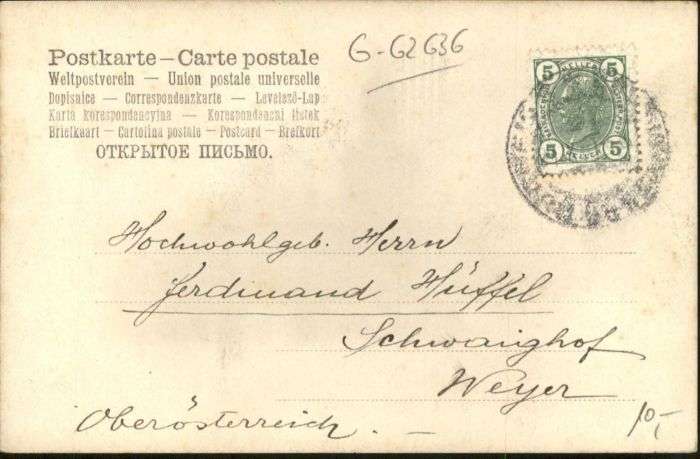 Postkarte – Carte postale
Weltpostverein — Union postale universelle
Dopisnice — Correspondenzkarte — Levelező-Lap
Karta korespondencyjna — Korespondencni listek
Briefkaart — Cartolina postale — Postcard — Brefkort
ОТКРЫТОЕ ПИСЬМО.
G-62636
5 HELLER 5
5 5
Hochwohlgeb. Herrn
Ferdinand Hüffel
Schwaighof
Weyer
Oberösterreich. –
10,-